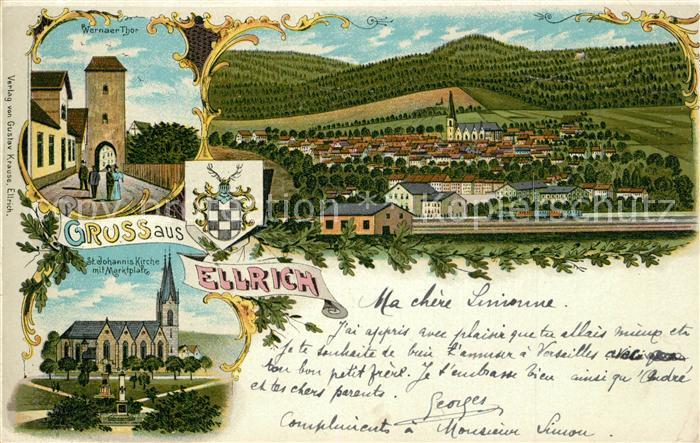 Wernaer Thor
Verlag von Gustav Krause, Ellrich.
GRUSS aus
ELLRICH
St. Johannis Kirche
mit Marktplatz
Ma chère Simonne.
J'ai appris avec plaisir que tu allais mieux et
je te souhaite de bien t'amuser à Versailles avec
ton bon petit frère. Je t'embrasse bien ainsi qu'André
et tes chers parents.
Georges
Compliments à Monsieur Simon.